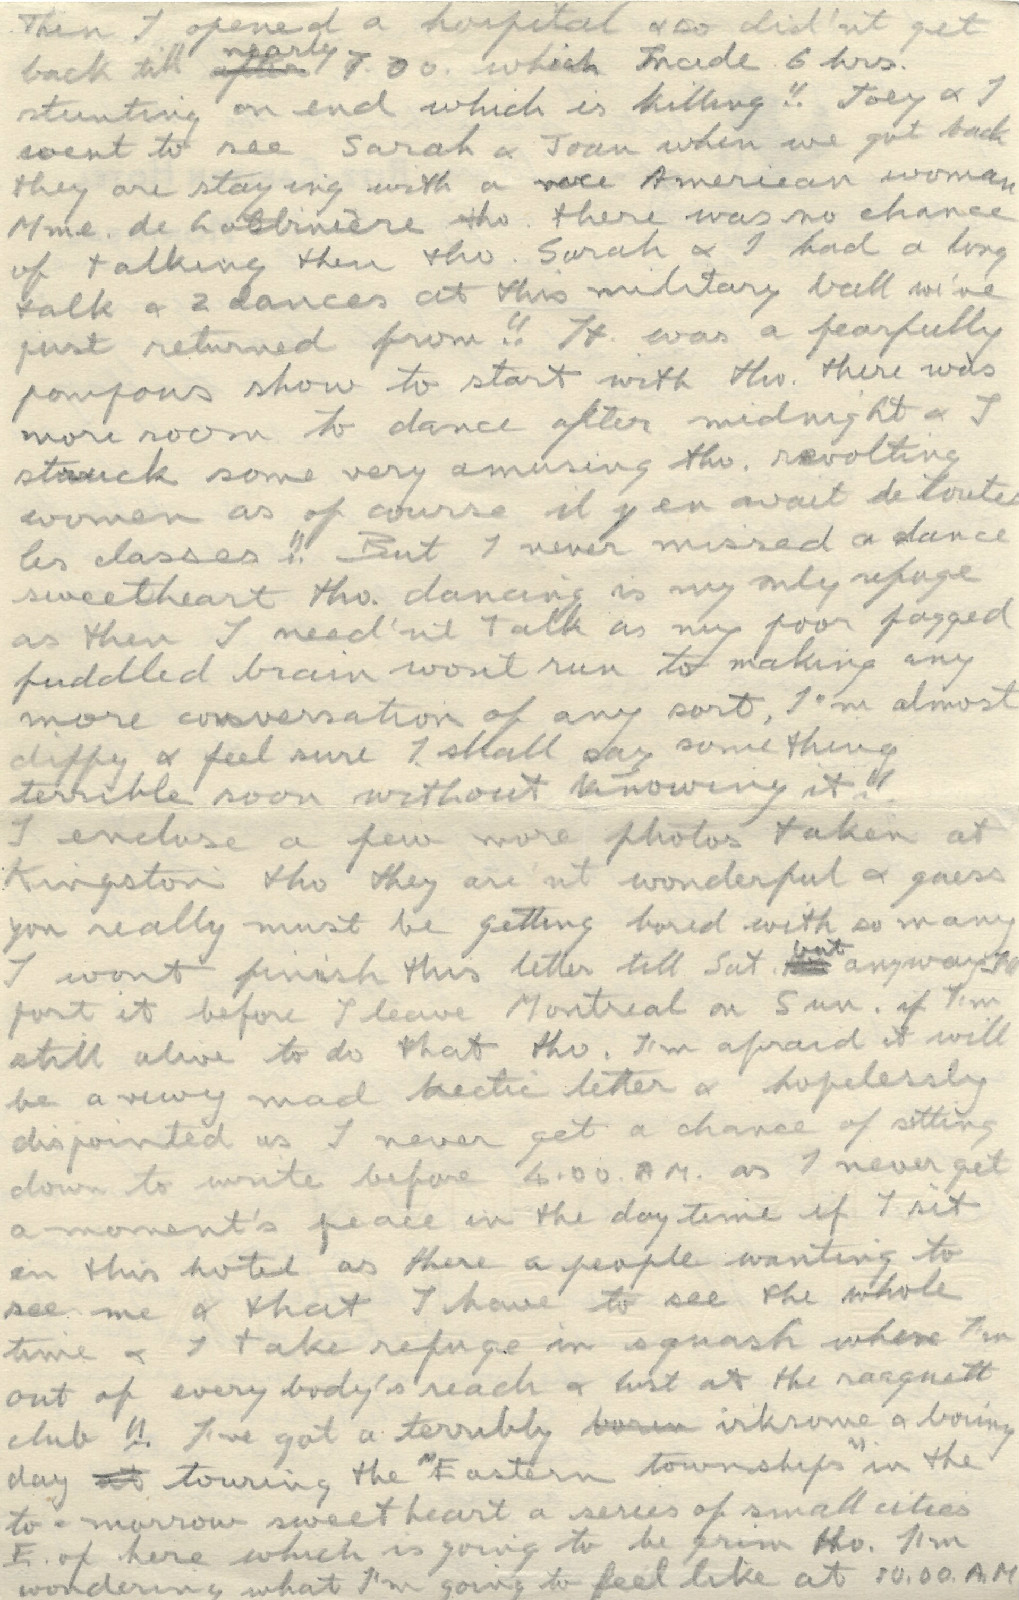 Then I opened a hospital & so did'nt get
back till after nearly 7.00. which made 6 hrs.
stunting on end which is killing!! Joey & I
went to see Sarah & Joan when we got back
they are staying with a nice American woman
Mme. de Lotbinière tho. there was no chance
of talking then tho. Sarah & I had a long
talk & 2 dances at this military ball we've
just returned from!! It was a fearfully
pompous show to start with tho. there was
more room to dance after midnight & I
struck some very amusing tho. revolting
women as of course il y en avait de toutes
les classes!! But I never missed a dance
sweetheart tho. dancing is my only refuge
as then I need'nt talk as my poor fagged
fuddled brain wont run to making any
more conversation of any sort, I'm almost
diffy & feel sure I shall say something
terrible soon without knowing it!!
I enclose a few more photos taken at
Kingston tho they are'nt wonderful & guess
you really must be getting bored with so many
I wont finish this letter till Sat. but anyway I'll
post it before I leave Montreal on Sun. if I'm
still alive to do that tho. I'm afraid it will
be a very mad hectic letter & hopelessly
disjointed as I never get a chance of sitting
down to write before 4.00. A.M. as I never get
a moment's peace in the daytime if I sit
in this hotel as there a people wanting to
see me & that I have to see the whole
time & I take refuge in squash where I'm
out of everybody's reach & lost at the racquett
club!! I've got a terribly irksome & boring
day touring the "Eastern townships" in the
to-morrow sweetheart a series of small cities
E. of here which is going to be grim tho. I'm
wondering what I'm going to feel like at 10.00. A.M